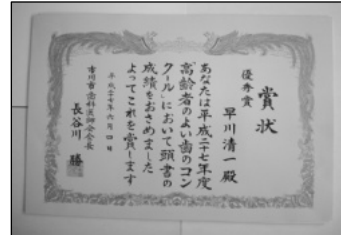 賞状
優秀賞
早川清一殿
あなたは平成二十七年度
高齢者のよい歯のコン
クールにおいて頭書の
成績をおさめました
よってこれを賞します
平成二十七年六月四日
市川市歯科医師会会長
長谷川勝